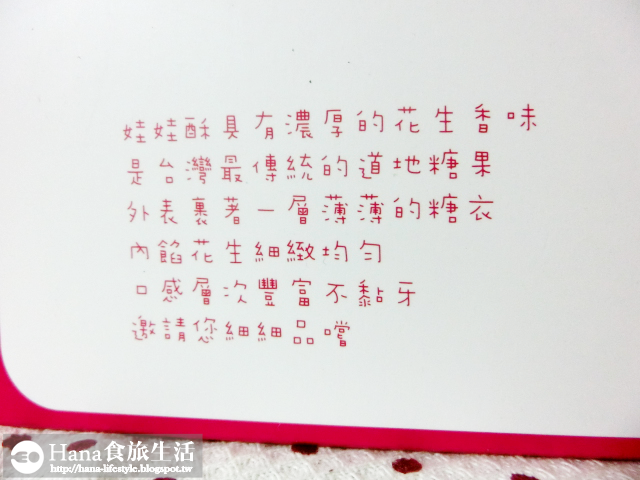 娃娃酥具有濃厚的花生香味
是台灣最傳統的道地糖果
外表裹著一層薄薄的糖衣
內餡花生細緻均勻
口感層次豐富不黏牙
邀請您細細品嚐
Hana食旅生活
http://hana-lifestyle.blogspot.tw